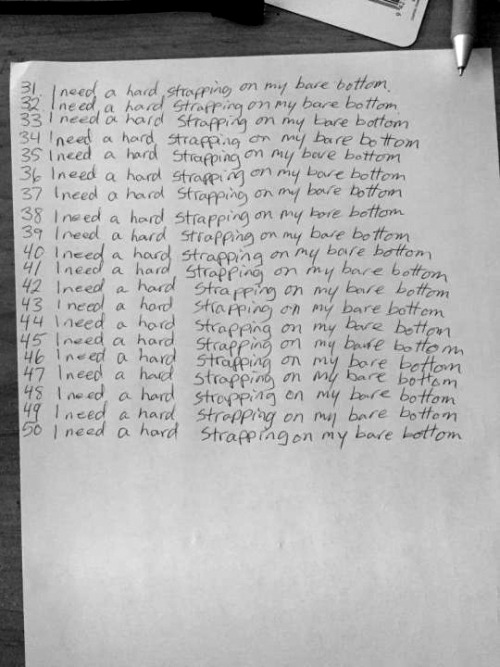 31. I need a hard strapping on my bare bottom.
32. I need a hard strapping on my bare bottom
33 I need a hard strapping on my bare bottom
34 I need a hard strapping on my bare bottom
35 I need a hard strapping on my bare bottom
36 I need a hard strapping on my bare bottom
37 I need a hard strapping on my bare bottom
38 I need a hard strapping on my bare bottom
39 I need a hard strapping on my bare bottom
40 I need a hard strapping on my bare bottom
41 I need a hard strapping on my bare bottom
42 I need a hard strapping on my bare bottom
43 I need a hard strapping on my bare bottom
44 I need a hard strapping on my bare bottom
45 I need a hard strapping on my bare bottom
46 I need a hard strapping on my bare bottom
47 I need a hard strapping on my bare bottom
48 I need a hard strapping on my bare bottom
49 I need a hard strapping on my bare bottom
50 I need a hard strapping on my bare bottom